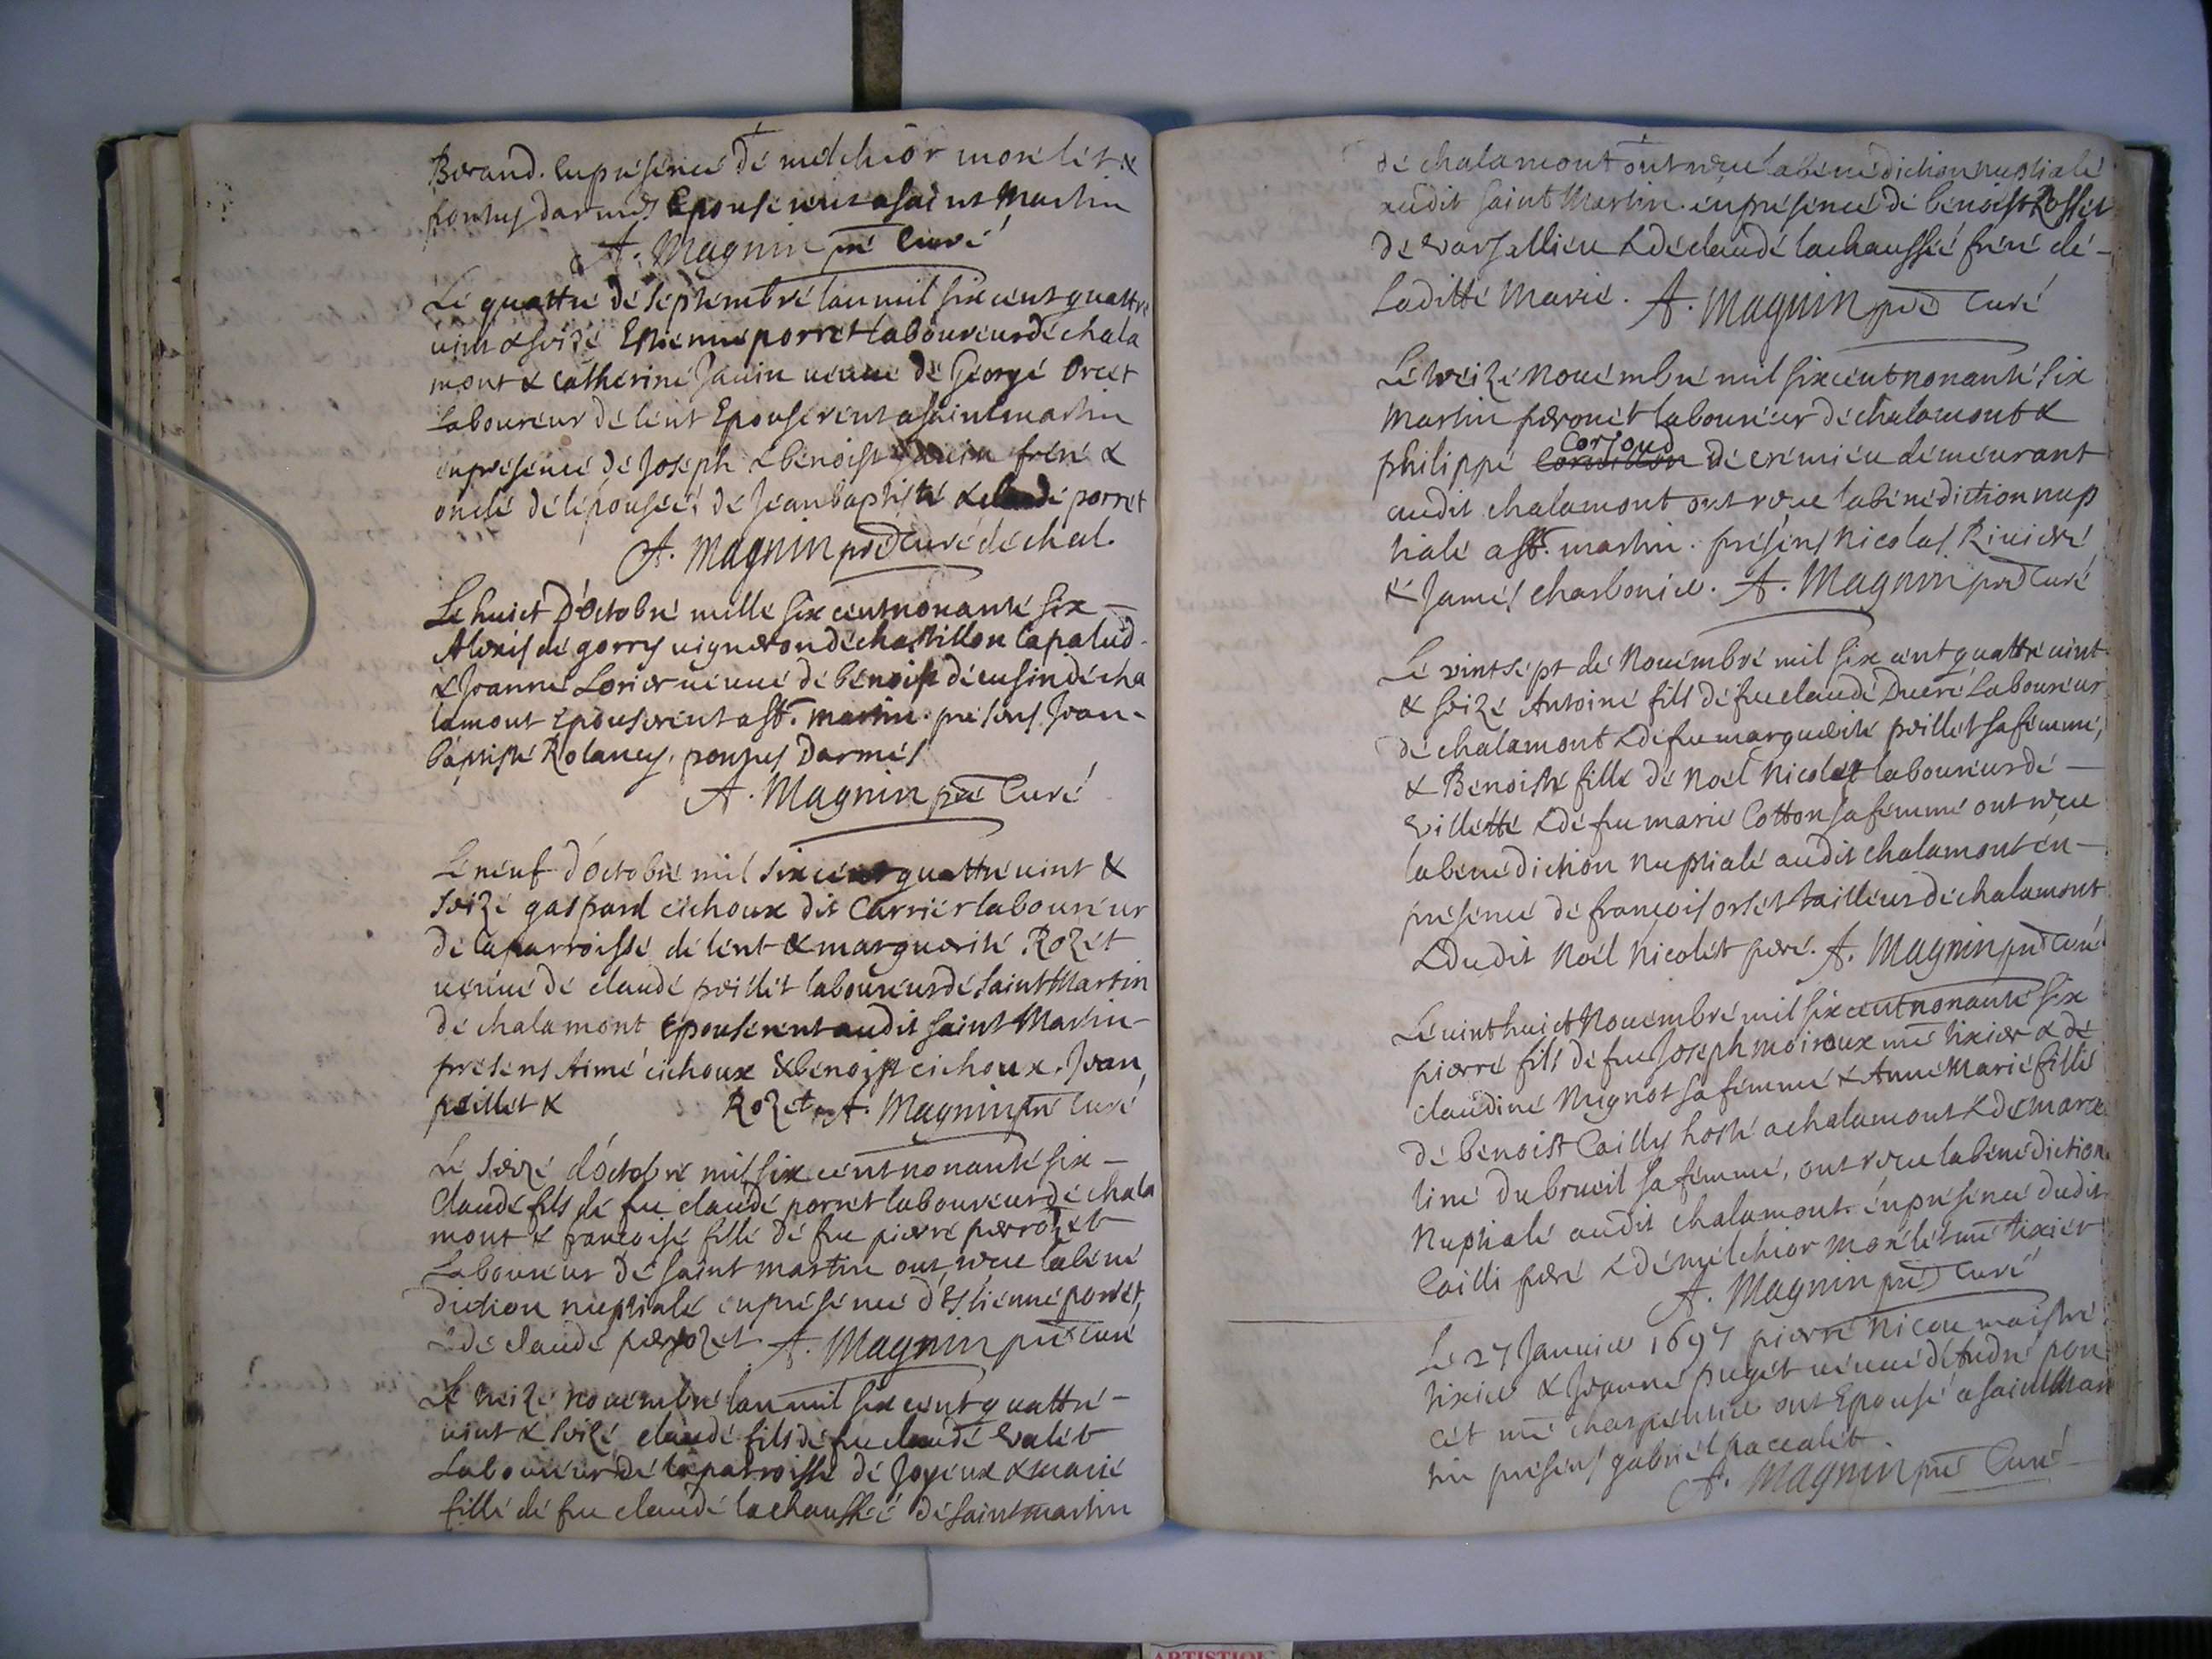 Berand. en présence de melchior morelet &
pontus darmes Epouserent a saint Martin
A. Magnin pre Curé
Le quattre de septembre l'an mil six cent quattre
vint & seize Estienne porret laboureur de chala
mont & catherine Janin veuve de George Orcet
laboureur de lent Epouserent a saint martin
en presence de Joseph & benoist Janin frere &
oncle de l'épousée, de Jean baptiste & claude porret
A. Magnin pre Curé de chal.
Le huict d'Octobre mille six cent nonante six
Alexis de gorry vigneron de chastillon la palud
& Jeanne Lorier veuve de benoist decusin de cha
lamont Epouserent a st. martin. presens Jean-
baptiste Rolancy, pontus Darmes
A. Magnin pre Curé
Le neuf d'octobre mil six cent quattre vint &
seize gaspard cichoux dit Carrier laboureur
de la parroisse de lent & marguerite Rozet
veuve de claude peillet laboureur de Saint Martin
de chalamont Epouserent audit saint Martin
presens Aimé cichoux & benoist cichoux. Jean
peillet & Rozet. A. Magnin pre Curé
Le seize d'Octobre mil six cent nonante six
Claude fils de feu claude porret laboureur de chala
mont & francoise fille de feu pierre perrozet
Laboureur de saint martin ont receu la béné
diction nuptiale en présence d'Estienne porret,
& de claude perrozet A. Magnin pre Curé
Le treize novembre l'an mil six cent quattre
vint & seize claude fils de feu claude valet
Laboureur de la parroisse de Joyeux & marie
fille de feu claude lachaussée de saint martin
de chalamont ont receu la bénédiction nuptiale
audit saint Martin. en présence de benoist Rosset
de versallieu & de claude lachaussée frere de
laditte Marie. A. Magnin pre Curé
Le treize Novembre mil six cent nonante six
Martin peronet laboureur de chalamont &
philippe Corjoud de cremieu demeurant
audit chalamont ont receu la bénédiction nup
tiale a st. martin. présens Nicolas Riviere
& James charbonier. A. Magnin pre Curé
Le vint sept de Novembre mil six cent quattre vint
& seize Antoine fils de feu claude Ducré Laboureur
de chalamont & de feu marguerite peillet sa femme,
& Benoiste fille de Noël Nicolet laboureur de
villette & de feu marie Cotton sa femme ont receu
la bénédiction Nuptiale audit chalamont en
présence de françois orset tailleur de chalamont
& dudit Noël Nicolet pere. A. Magnin pre Curé
Le vint huict Novembre mil six cent nonante six
pierre fils de feu Joseph moiroux me tixier & de
claudine Mignot sa femme & Anne Marie fille
de benoist Cailly hoste a chalamont & de marce
line dubrueil sa femme, ont receu la bénédiction
Nuptiale audit chalamont. en présence dudit
Cailli pere & de melchior morelet me tixier
A. Magnin pre Curé
Le 27 Janvier 1697 pierre Nicou maistre
tixier & Jeanne puget veuve d'André pon
cet me charpentier ont Epousé a saint Mar
tin présens gabriel paccalet.
A. Magnin pre Curé